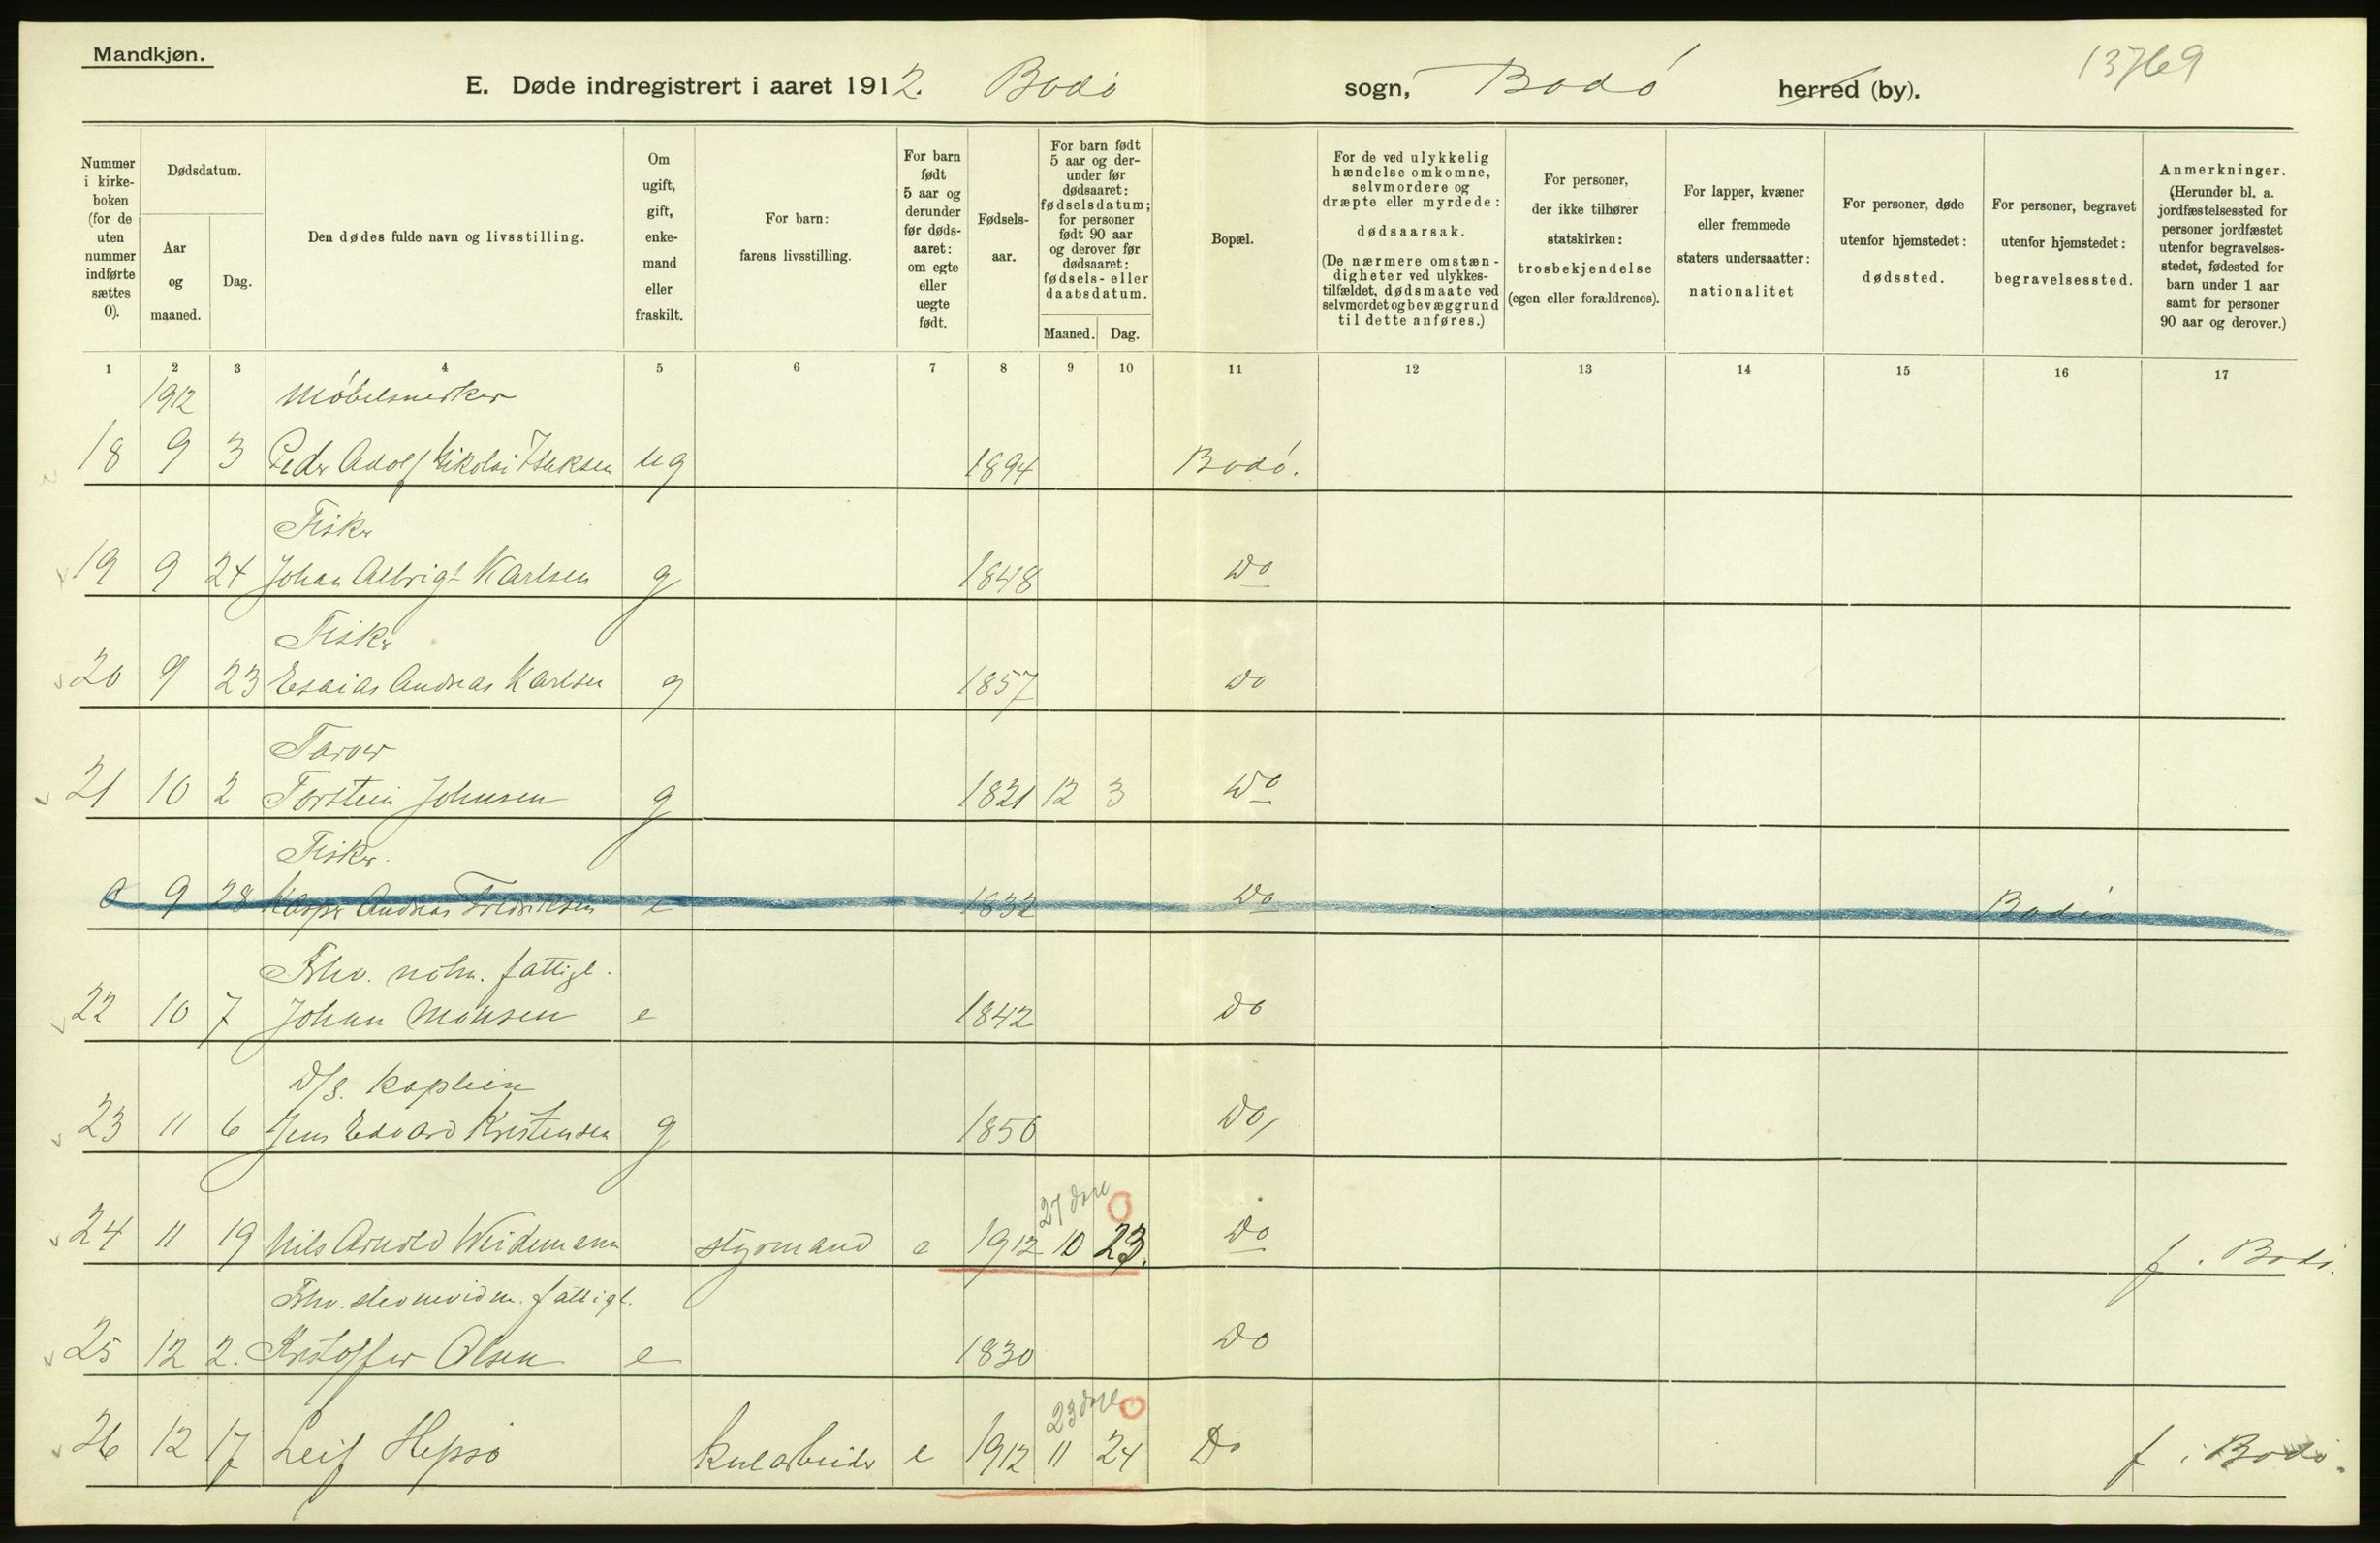 Mandkjøn.
E. Døde indregistrert i aaret 1912. Bodø sogn, Bodø herred (by). 13769
Nummer i kirkeboken (for de uten nummer indførte sættes 0).
Dødsdatum.
Aar og maaned.
Dag.
Den dødes fulde navn og livsstilling.
Om ugift, gift, enkemand eller fraskilt.
For barn: farens livsstilling.
For barn født 5 aar og derunder før dødsaaret: om egte eller uegte født.
Fødselsaar.
For barn født 5 aar og derunder før dødsaaret: fødselsdatum; for personer født 90 aar og derover før dødsaaret: fødsels- eller daabsdatum.
Maaned. Dag.
Bopæl.
For de ved ulykkelig hændelse omkomne, selvmordere og dræpte eller myrdede: dødsaarsak. (De nærmere omstændigheter ved ulykkestilfældet, dødsmaate ved selvmordet og bevæggrund til dette anføres.)
For personer, der ikke tilhører statskirken: trosbekjendelse (egen eller forældrenes).
For lapper, kvæner eller fremmede staters undersaatter: nationalitet
For personer, døde utenfor hjemstedet: dødssted.
For personer, begravet utenfor hjemstedet: begravelsessted.
Anmerkninger. (Herunder bl. a. jordfæstelsessted for personer jordfæstet utenfor begravelsesstedet, fødested for barn under 1 aar samt for personer 90 aar og derover.)
1 2 3 4 5 6 7 8 9 10 11 12 13 14 15 16 17
1912 Møbelsnerker
18 9 3 Peder Adolf Nikolai Isaksen ug 1894 Bodø.
Fisker
19 9 24 Johan Albrigt Karlsen g 1848 Do
Fisker
20 9 23 Esaias Andreas Karlsen g 1857 Do
Farver
21 10 2 Torstein Johnsen g 1821 12 3 Do
Fisker.
0 9 28 Kasper Andreas Fredriksen e 1832 Do Bodin
Fhv. fattigl.
22 10 7 Johan Monsen e 1842 Do
D/S. kaptein
23 11 6 Jens Edvard Kristensen g 1856 Do,
27 dage
24 11 19 Nils Arnold Weidemann styrmand e 1912 10 23. Do f. Bodø.
Fhv. stevnevidn. fattigl.
25 12 2. Kristoffer Olsen e 1830 Do
23 dage
26 12 17 Leif Hepsø kularbeider e 1912 11 24 Do f. i Bodø.